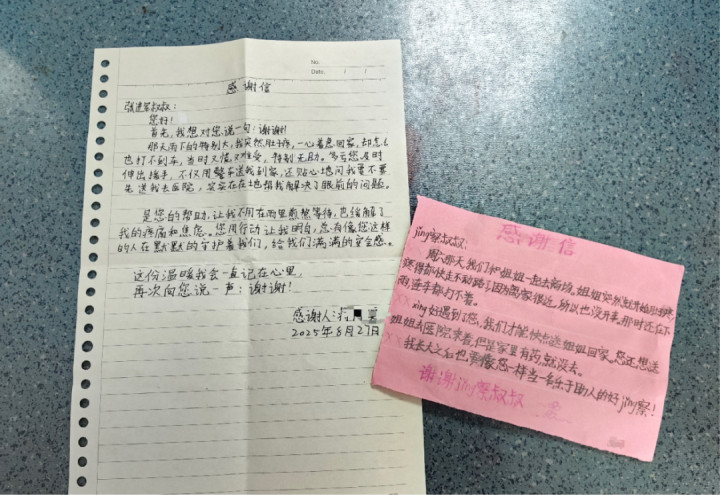 No.
Date. / /
感谢信
张进军叔叔:
您好!
首先,我想对您说一句:谢谢!
那天雨下的特别大,我突然肚子疼,一心着急回家,却怎么
也打不到车,当时又慌又难受,特别无助。多亏您及时
伸出援手,不仅用警车送我到家,还贴心地问我要不要
先送我去医院,实实在在地帮我解决了眼前的问题。
是您的帮助,让我不用在雨里煎熬等待,也缓解了
我的疼痛和焦急。您用行动让我明白,总有像您这样
的人在默默的守护着我们,给我们满满的安全感。
这份温暖我会一直记在心里,
再次向您说一声:谢谢!
感谢人:
2025年8月27日
感谢信
jing察叔叔:
周六那天我们和姐姐一起去商场,姐姐突然就开始肚子疼
疼得都快走不动路了,因为离家很近,所以也没开车。那时还在下
雨,连车都打不着。
xing好遇到了您,我们才能快点送姐姐回家。您还想送
姐姐去医院来着,但是家里有药,就没去。
我长大之后也要像您一样当一名乐于助人的好jing察!
谢谢jing察叔叔